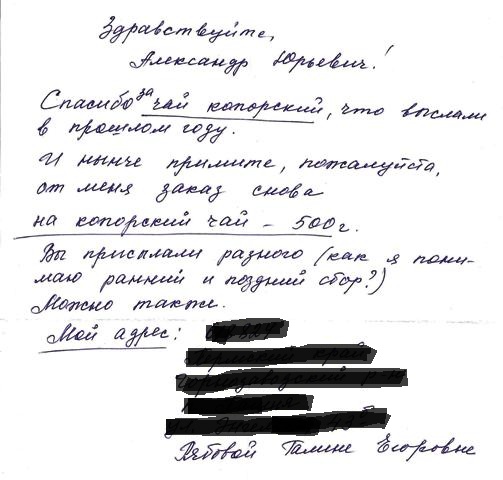 Здравствуйте,
Александр Юрьевич!
Спасибо за чай копорский, что выслали
в прошлом году.
И нынче примите, пожалуйста,
от меня заказ снова
на копорский чай – 500 г.
Вы присылали разного (как я пони-
маю ранний и поздний сбор?)
Можно также.
Мой адрес:
Рябовой Галине Егоровне